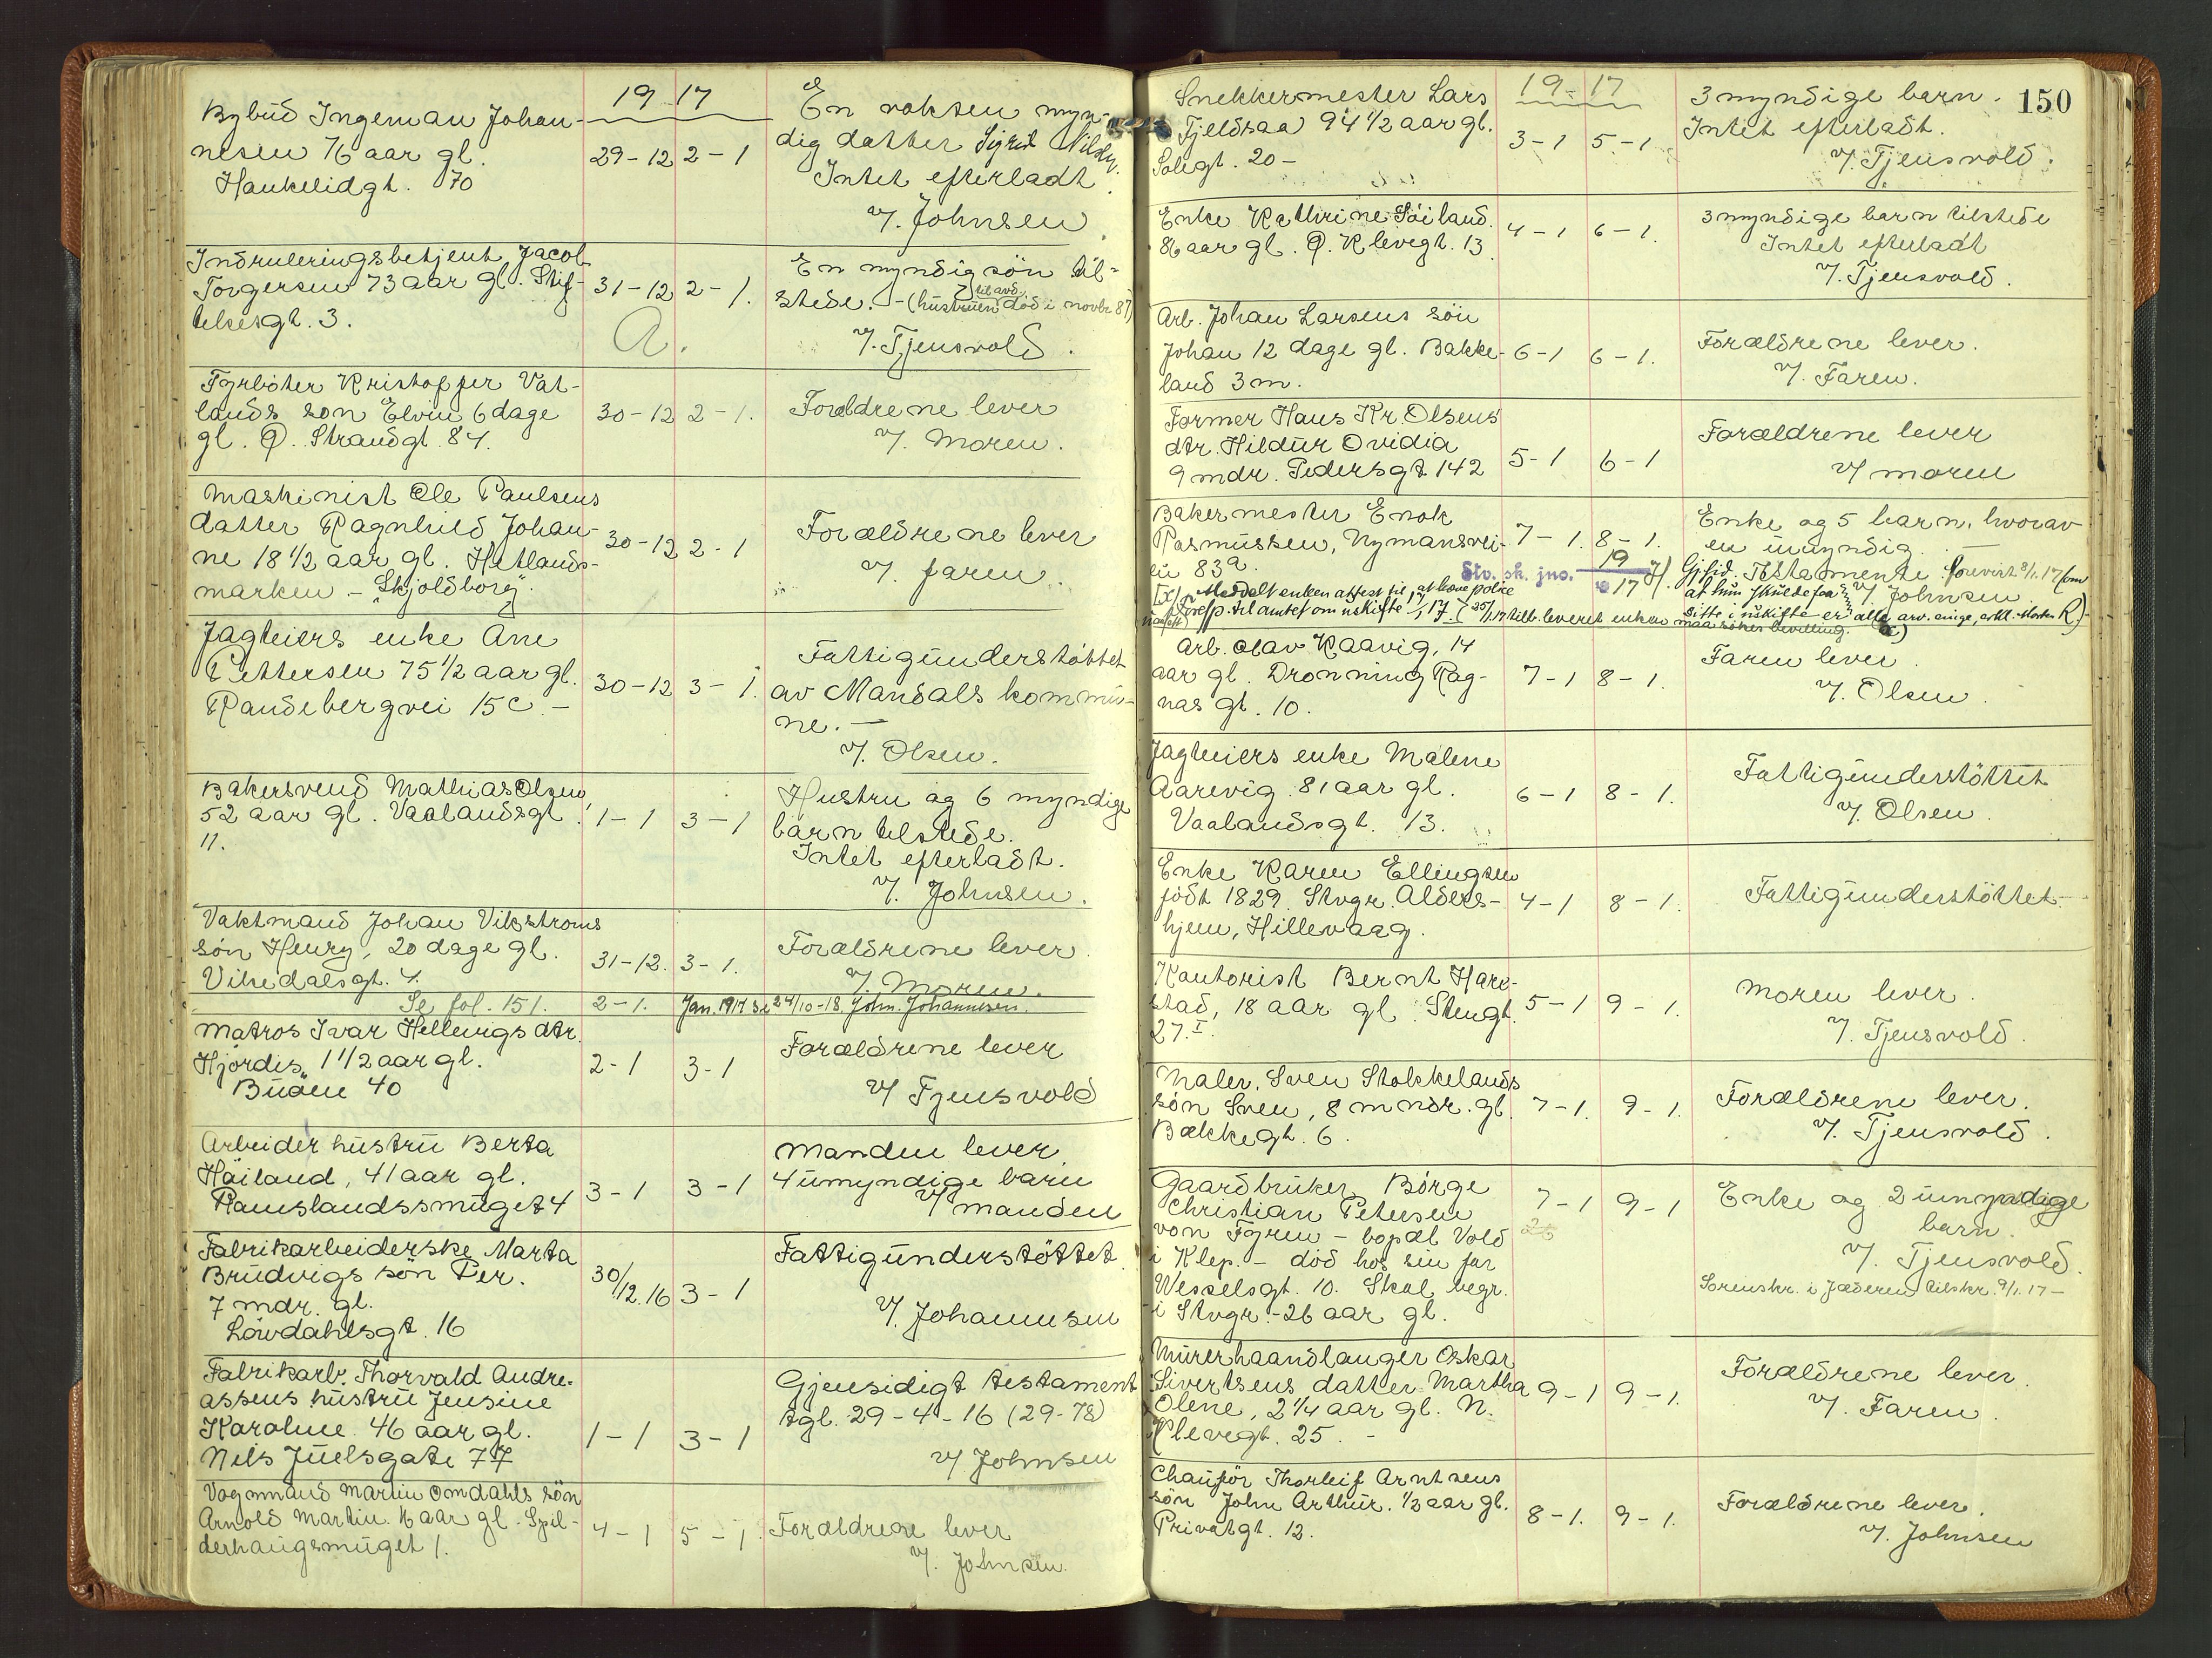 19 17
Bybud Ingeman Johan-
nesen 76 aar gl.
Haukelidgt. 70
29-12 2-1
En voksen myn-
dig datter Sigrid
Intet efterladt.
v/. Johnsen
Indruleringsbetjent Jacob
Torgersen 73 aar gl. Stif-
telsesgt. 3.
31-12 2-1.
A.
En myndig søn til-
stede. - (hustruen død i novbr 87)
v/. Tjensvold.
Fyrbøter Kristoffer Vat-
lands søn Elvin 6 dage
gl. Ø. Strandgt. 84.
30-12 2-1.
Forældrene lever
v/. Moren.
Maskinist Ole Paulsens
datter Ragnhild Johan-
ne 18 1/2 aar gl. Hetlands-
marken - "Skjoldborg"
30-12 2-1
Forældrene lever
v/. faren.
Jagteiers enke Ane
Pettersen 75 1/2 aar gl.
Randebergvei 15 c. -
30-12 3-1.
Fattigunderstøttet
av Mandals kommu-
ne. -
v/. Olsen.
Bakersvend Mathias Olsen
52 aar gl. Vaalandsgt.
11.
1-1 3-1
Hustru og 6 myndige
barn tilstede.
Intet efterladt.
v/. Johnsen.
Vaktmand Johan Vikstrøms
søn Henry, 20 dage gl.
Vikedalsgt. 4.
31-12. 3-1.
Forældrene lever.
v/. Moren.
Se fol. 151. 2-1. Jan. 1917 se 24/10-18. John. Johannesen.
Matros Ivar Hellevigs dtr.
Hjørdis, 1 1/2 aar gl.
Buøen 40
2-1 3-1
Forældrene lever
v/ Tjensvold
Arbeider hustru Berta
Høiland, 41 aar gl.
Ramslandssmuget 4
3-1 3-1
Manden lever
4 umyndige barn
v/ manden
Fabrikarbeiderske Marta
Brudvigs søn Per.
7 mdr. gl.
Løvdahlsgt. 16
30/12.16 3-1
Fattigunderstøttet.
v/. Johannsen
Fabrikarb. Thorvald Andre-
assens hustru Jensine
Karoline. 46 aar gl.
Nils Juelsgate 77
1-1 3-1
Gjensidigt testament
tgl. 29-4-16 (29-78)
v/ Johnsen
Vognmand Martin Omdahls søn
Arnold Martin. aar gl. Spil-
derhaugsmuget 1.
4-1 5-1.
Forældrene lever
v/. Johnsen.
150
19-17
Snekkermester Lars
Fjeldsaa 94 1/2 aar gl.
Solegt. 20-
3-1 5-1
3 myndige barn.
Intet efterladt.
v/. Tjensvold.
Enke Kathrine Søiland.
86 aar gl. Ø. Klevegt. 13.
4-1 6-1.
3 myndige barn tilstede
Intet efterladt
v/. Tjensvold.
Arb. Johan Larsens søn
Johan 12 dage gl. Bakke-
land 3 m.
6-1 6-1.
Forældrene lever.
v/. Faren.
Farmer Hans Kr. Olsens
dtr. Hildur Ovidia
9 mdr. Pedersgt 142
5-1 6-1
Forældrene lever
v/ moren
Bakermester Enok
Rasmussen, Nymansvei-
en 83 a.
7-1. 8-1.
Enke og 5 barn, hvorav
en umyndig.
Stv. sk. jno. 19/17
Gjsid. Testamente forevist 8/1.17 (om
at hun skulde faa
v/. Johnsen
Meddelt enken attest til at hæve police
Foresp. til amtet om uskifte 25/1.17 tilb. leveret enken
Arb. Olav Raavig, 14
aar gl. Dronning Rag-
nas gt. 10.
7-1 8-1.
Faren lever.
v/. Olsen.
Jagteiers enke Malene
Aarevig. 81 aar gl.
Vaalandsgt. 13.
6-1 8-1.
Fattigunderstøttet
v/. Olsen.
Enke Karen Ellingsen
født 1829. Stvgr. Alders-
hjem, Hillevaag.
4-1 8-1.
Fattigunderstøttet.
Kontorist Bernt Hare-
stad, 18 aar gl. Stengt.
27. I.
5-1 9-1.
Moren lever.
v/. Tjensvold.
Maler. Sven Stokkelands
søn Sven, 8 mndr. gl.
Bækkegt. 6.
7-1. 9-1.
Forældrene lever.
v/. Tjensvold.
Gaardbruker Børge
Christian Petersen
von Fyren - bopæl Vold
i Klep. - død hos sin far
Wesselsgt. 10. Skal begr.
i Stvgr. - 26 aar gl.
7-1 9-1
26
Enke og 2 umyndige
barn.
v/. Tjensvold.
Sorenskr. i Jæderen tilskr. 9/1.17-
Murerhaandlanger Oskar
Sivertsens datter Martha
Olene, 2 1/4 aar gl. N.
Klevegt. 25. -
9-1 9-1.
Forældrene lever.
v/. Faren.
Chauffør Thorleif Arntsens
søn John Arthur. 1/2 aar gl.
Privatgt. 12.
8-1. 9-1.
Forældrene lever.
v/. Johnsen